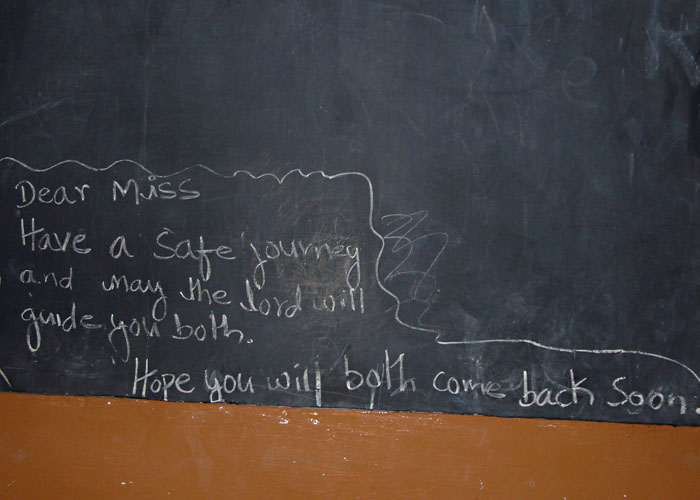 Dear Miss
Have a safe journey
and may the lord will
guide you both.
Hope you will both come back soon.